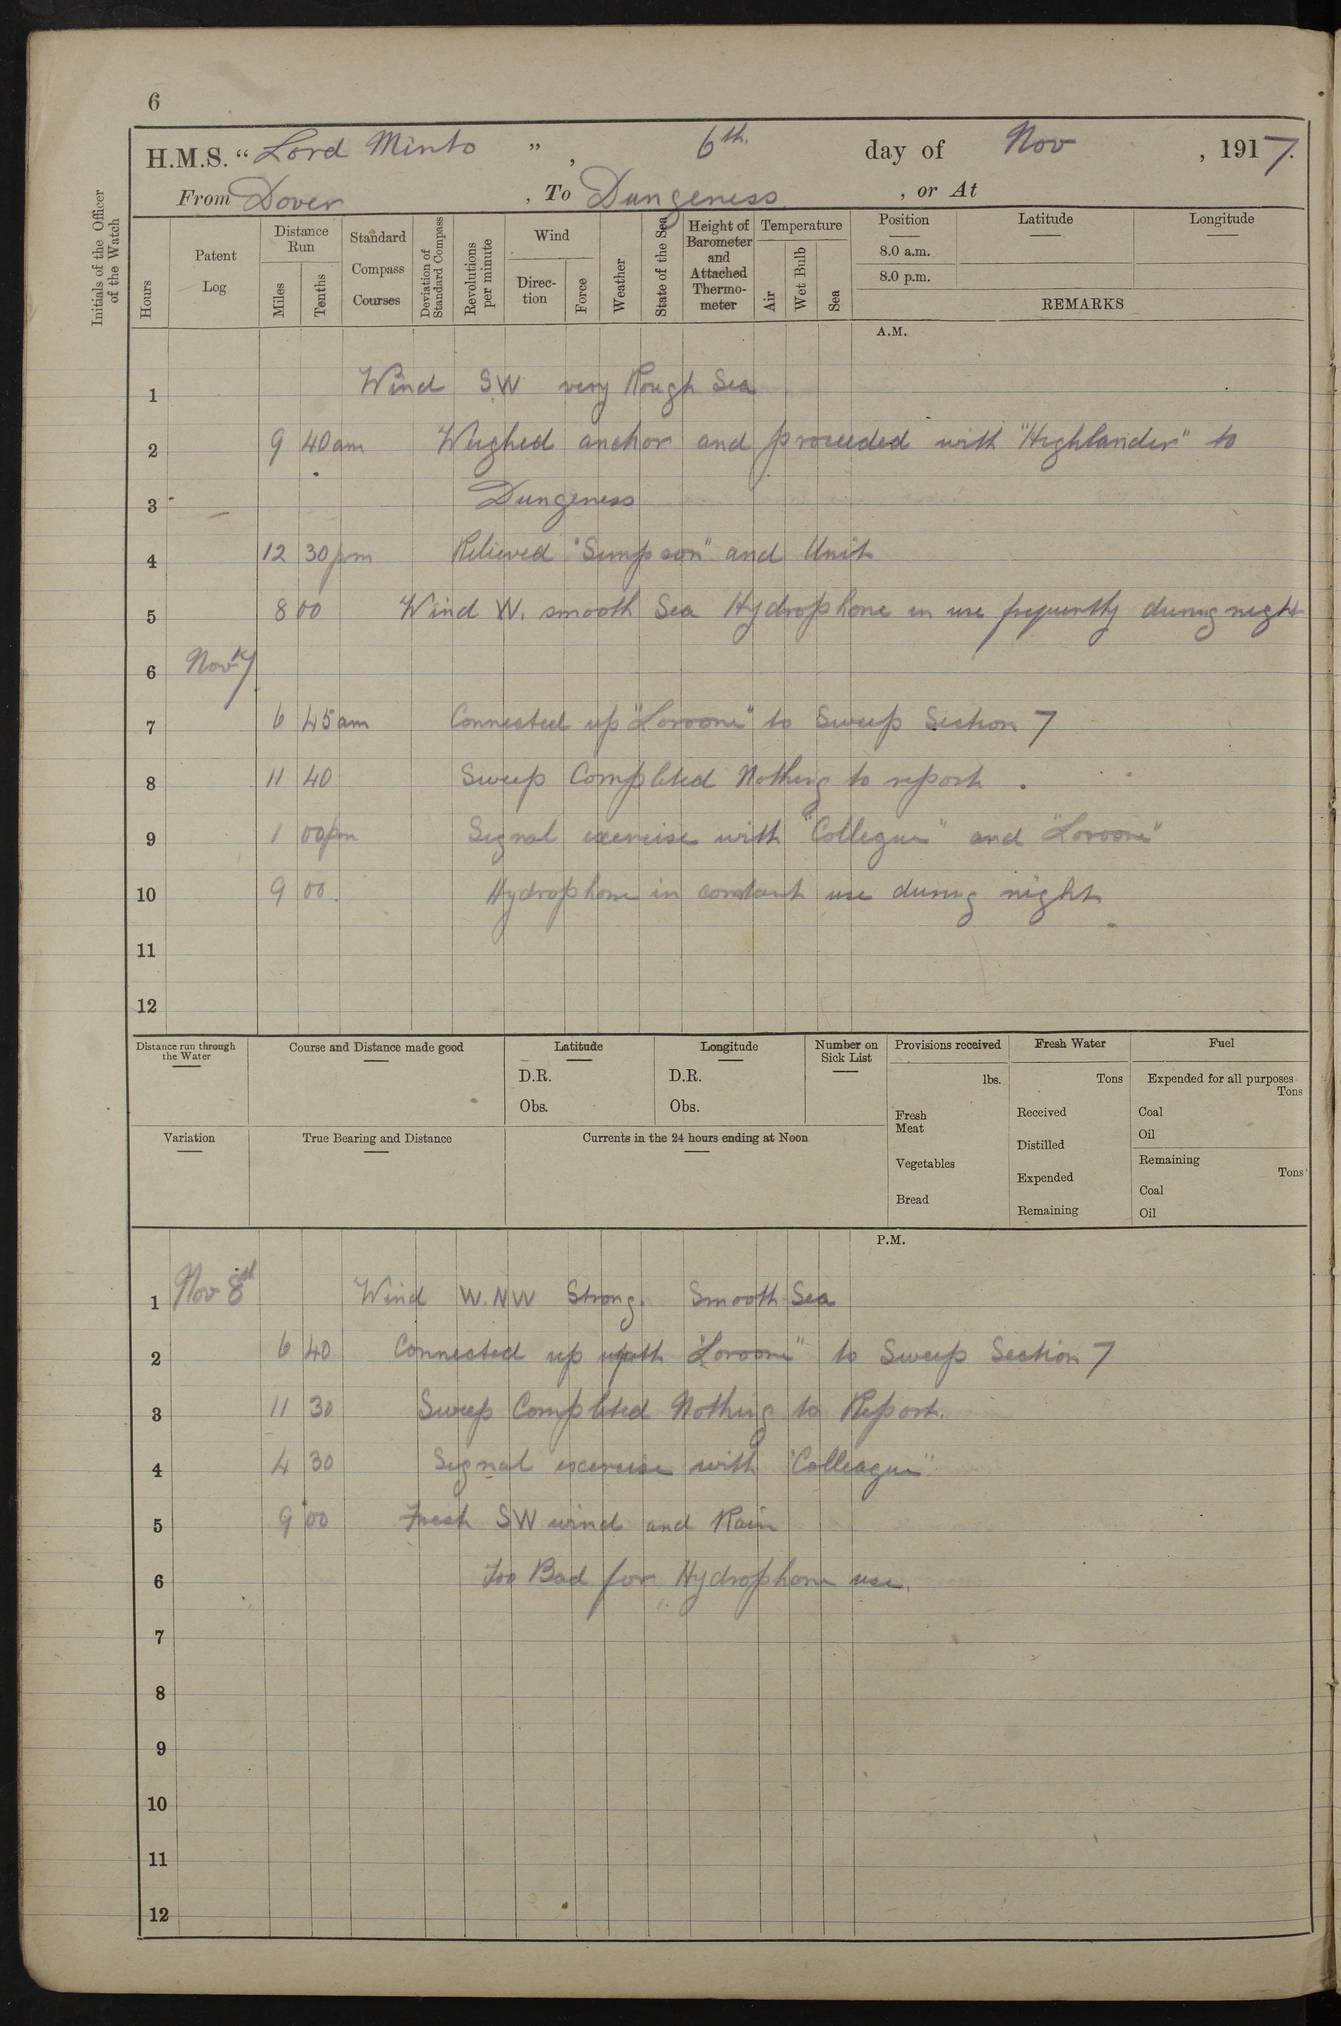 6
H.M.S. “ Lord Minto ” , 6th day of Nov , 1917.
From Dover , To Dungeness , or At
Initials of the Officer of the Watch
Hours
Patent Log
Distance Run
Miles
Tenths
Standard Compass Courses
Deviation of Standard Compass
Revolutions per minute
Wind
Direc-tion
Force
Weather
State of the Sea
Height of Barometer and Attached Thermo-meter
Temperature
Air
Wet Bulb
Sea
Position
Latitude
Longitude
8.0 a.m.
8.0 p.m.
REMARKS
A.M.
1 Wind SW very Rough Sea
2 9 40am Weighed anchor and proceeded with "Highlander" to
3 Dungeness
4 12 30pm Relieved "Simpson" and Unit
5 8 00 Wind W. smooth Sea Hydrophone in use frequently during night
6 Nov 7
7 6 45am Connected up "Loroone" to Sweep Section 7
8 11 40 Sweep Completed Nothing to report .
9 1 00pm Signal exercise with "Collegue" and "Loroone"
10 9 00 Hydrophone in constant use during night
11
12
Distance run through the Water
Course and Distance made good
Latitude
D.R.
Obs.
Longitude
D.R.
Obs.
Number on Sick List
Provisions received
lbs.
Fresh Meat
Vegetables
Bread
Fresh Water
Tons
Received
Distilled
Expended
Remaining
Fuel
Expended for all purposes
Tons
Coal
Oil
Remaining
Tons
Coal
Oil
Variation
True Bearing and Distance
Currents in the 24 hours ending at Noon
P.M.
1 Nov 8th Wind W.NW Strong. Smooth Sea
2 6 40 Connected up with "Loroone" to Sweep Section 7
3 11 30 Sweep Completed Nothing to Report.
4 4 30 Signal exercise with "Colleague"
5 9 00 Fresh SW wind and Rain
6 Too Bad for Hydrophone use.
7
8
9
10
11
12